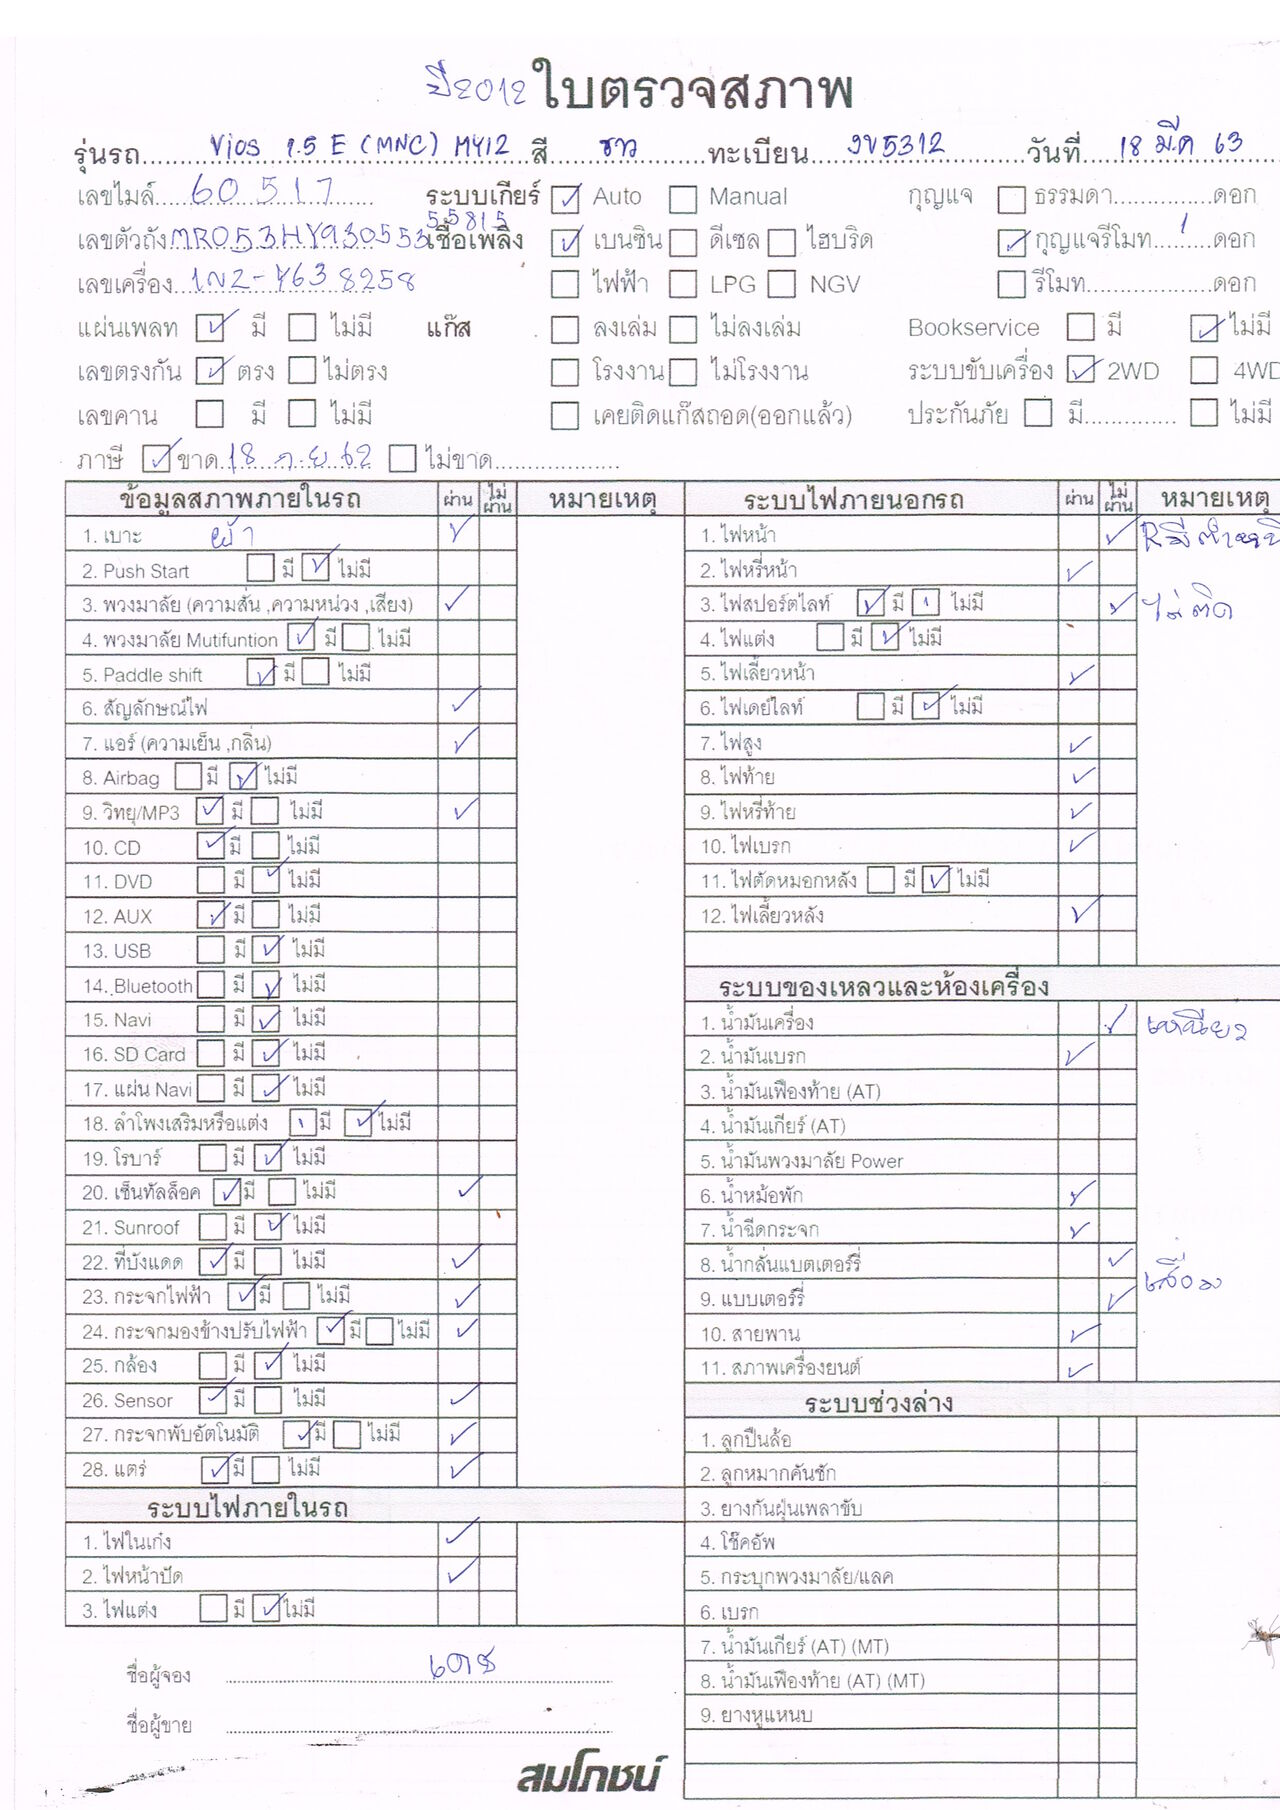 ปี2012 ใบตรวจสภาพ
รุ่นรถ Vios 1.5 E (MNC) MY12 สี ขาว ทะเบียน 5312 วันที่ 18 มีค 63
เลขไมล์ 60517 ระบบเกียร์ Auto Manual กุญแจ ธรรมดา ดอก
เลขตัวถัง MR053HY9305535 55815 เชื้อเพลิง เบนซิน ดีเซล ไฮบริด กุญแจรีโมท 1 ดอก
เลขเครื่อง 1NZ-Y638258 ไฟฟ้า LPG NGV รีโมท ดอก
แผ่นเพลท มี ไม่มี แก๊ส ลงเล่ม ไม่ลงเล่ม Bookservice มี ไม่มี
เลขตรงกัน ตรง ไม่ตรง โรงงาน ไม่โรงงาน ระบบขับเครื่อง 2WD 4WD
เลขคาน มี ไม่มี เคยติดแก๊สถอด(ออกแล้ว) ประกันภัย มี ไม่มี
ภาษี ขาด 18 ก.ย 62 ไม่ขาด
ข้อมูลสภาพภายในรถ ผ่าน ไม่ผ่าน หมายเหตุ
1. เบาะ ผ้า
2. Push Start มี ไม่มี
3. พวงมาลัย (ความสั่น ,ความหน่วง ,เสียง)
4. พวงมาลัย Mutifuntion มี ไม่มี
5. Paddle shift มี ไม่มี
6. สัญลักษณ์ไฟ
7. แอร์ (ความเย็น ,กลิ่น)
8. Airbag มี ไม่มี
9. วิทยุ/MP3 มี ไม่มี
10. CD มี ไม่มี
11. DVD มี ไม่มี
12. AUX มี ไม่มี
13. USB มี ไม่มี
14. Bluetooth มี ไม่มี
15. Navi มี ไม่มี
16. SD Card มี ไม่มี
17. แผ่น Navi มี ไม่มี
18. ลำโพงเสริมหรือแต่ง มี ไม่มี
19. โรบาร์ มี ไม่มี
20. เซ็นทัลล็อค มี ไม่มี
21. Sunroof มี ไม่มี
22. ที่บังแดด มี ไม่มี
23. กระจกไฟฟ้า มี ไม่มี
24. กระจกมองข้างปรับไฟฟ้า มี ไม่มี
25. กล้อง มี ไม่มี
26. Sensor มี ไม่มี
27. กระจกพับอัตโนมัติ มี ไม่มี
28. แตร่ มี ไม่มี
ระบบไฟภายในรถ
1. ไฟในเก๋ง
2. ไฟหน้าปัด
3. ไฟแต่ง มี ไม่มี
ชื่อผู้จอง เดช
ชื่อผู้ขาย
สมโภชน์
ระบบไฟภายนอกรถ ผ่าน ไม่ผ่าน หมายเหตุ
1. ไฟหน้า Rมีตำหนิ
2. ไฟหรี่หน้า
3. ไฟสปอร์ตไลท์ มี ไม่มี ไม่ติด
4. ไฟแต่ง มี ไม่มี
5. ไฟเลี้ยวหน้า
6. ไฟเดย์ไลท์ มี ไม่มี
7. ไฟสูง
8. ไฟท้าย
9. ไฟหรี่ท้าย
10. ไฟเบรก
11. ไฟตัดหมอกหลัง มี ไม่มี
12. ไฟเลี้ยวหลัง
ระบบของเหลวและห้องเครื่อง
1. น้ำมันเครื่อง เหนียว
2. น้ำมันเบรก
3. น้ำมันเฟืองท้าย (AT)
4. น้ำมันเกียร์ (AT)
5. น้ำมันพวงมาลัย Power
6. น้ำหม้อพัก
7. น้ำฉีดกระจก
8. น้ำกลั่นแบตเตอร์รี่
9. แบบเตอร์รี่ เสื่อม
10. สายพาน
11. สภาพเครื่องยนต์
ระบบช่วงล่าง
1. ลูกปืนล้อ
2. ลูกหมากคันชัก
3. ยางกันฝุ่นเพลาขับ
4. โช๊คอัพ
5. กระบุกพวงมาลัย/แลค
6. เบรก
7. น้ำมันเกียร์ (AT) (MT)
8. น้ำมันเฟืองท้าย (AT) (MT)
9. ยางหูแหนบ